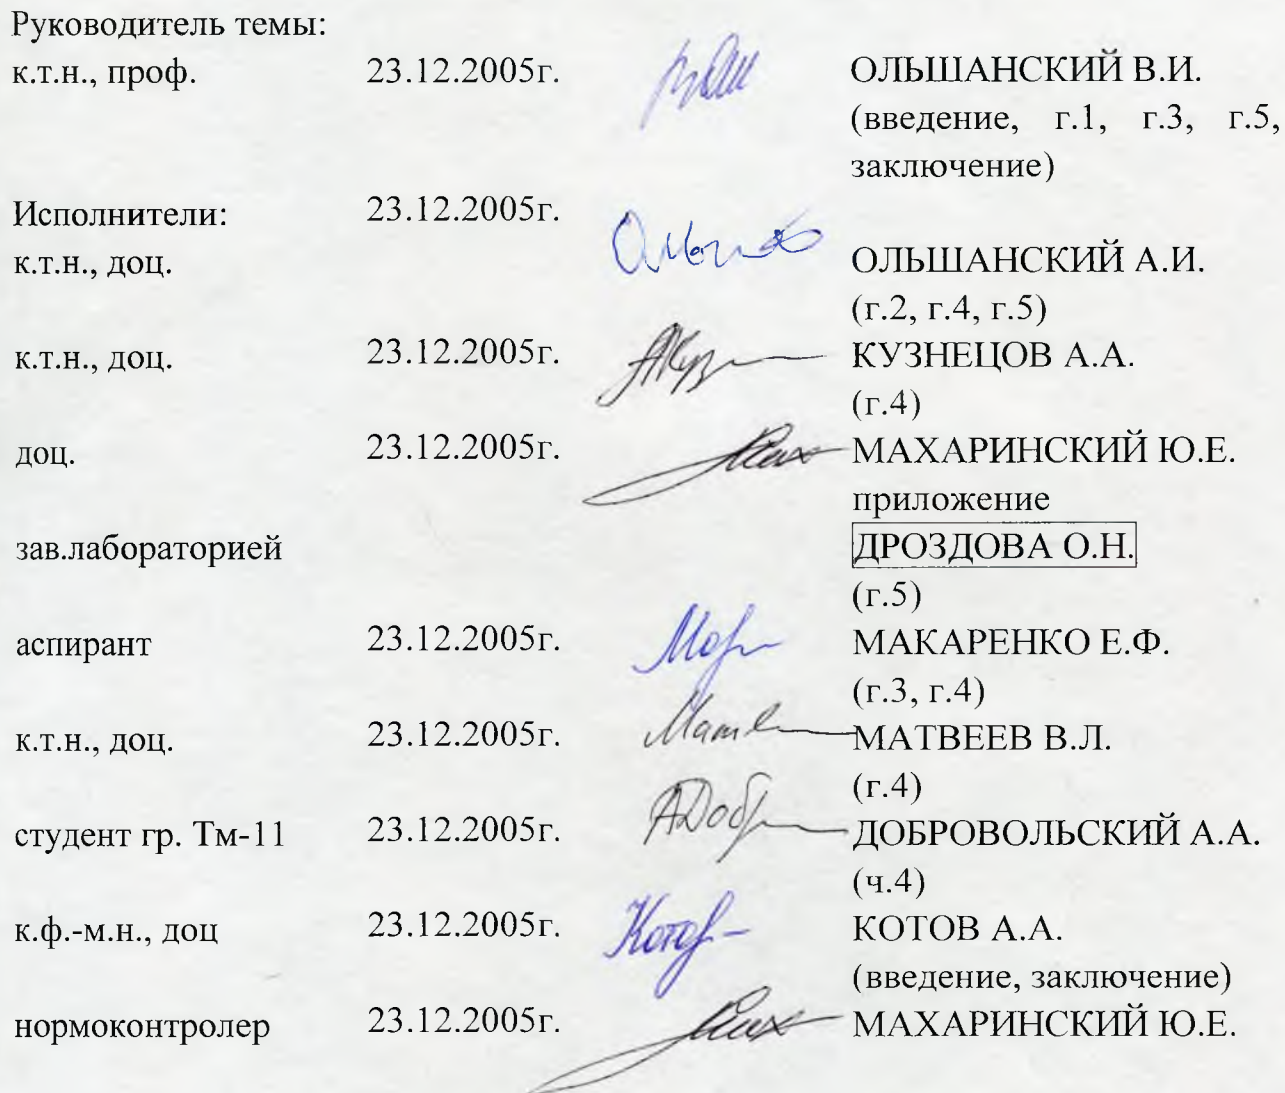 Руководитель темы:
к.т.н., проф. 23.12.2005г. ОЛЬШАНСКИЙ В.И.
(введение, г.1, г.3, г.5,
заключение)
Исполнители: 23.12.2005г.
к.т.н., доц. ОЛЬШАНСКИЙ А.И.
(г.2, г.4, г.5)
к.т.н., доц. 23.12.2005г. КУЗНЕЦОВ А.А.
(г.4)
доц. 23.12.2005г. МАХАРИНСКИЙ Ю.Е.
приложение
зав.лабораторией ДРОЗДОВА О.Н.
(г.5)
аспирант 23.12.2005г. МАКАРЕНКО Е.Ф.
(г.3, г.4)
к.т.н., доц. 23.12.2005г. МАТВЕЕВ В.Л.
(г.4)
студент гр. Тм-11 23.12.2005г. ДОБРОВОЛЬСКИЙ А.А.
(ч.4)
к.ф.-м.н., доц 23.12.2005г. КОТОВ А.А.
(введение, заключение)
нормоконтролер 23.12.2005г. МАХАРИНСКИЙ Ю.Е.